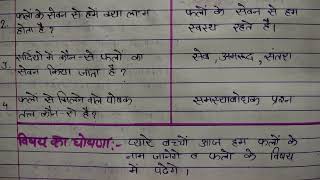 2. फलों के सेवन से हमें क्या लाभ
होता है ?
फलों के सेवन से हम
स्वस्थ रहते हैं।
3. सर्दियों में कौन-से फलों का
सेवन किया जाता है ?
सेब, अमरूद, संतरा
4. फलों से मिलने वाले पोषक
तत्व कौन-से हैं ?
समस्याबोधक प्रश्न
विषय का घोषणा:- प्यारे बच्चों आज हम फलों के
नाम जानेंगे व फलों के विषय
में पढ़ेंगे ।